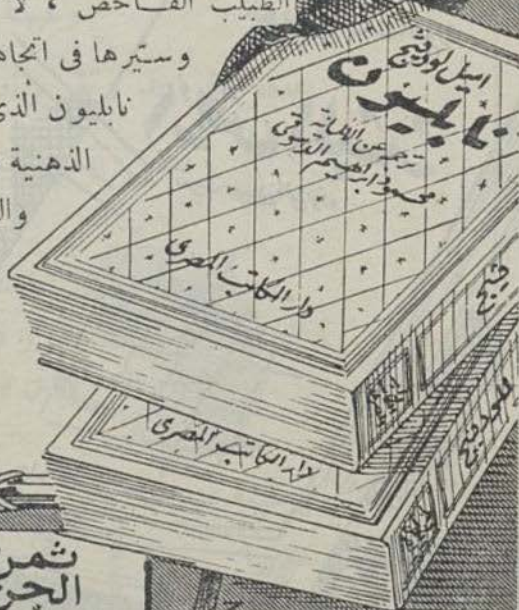 الطبيب الفاحص ، لا
وسيرها فى اتجاه
نابليون الذى
الذهنية
وال
اميل لودفيج
نابليون
ترجمه عن الألمانية
محمود ابراهيم الدسوقى
دار الكاتب المصرى
دار الكاتب المصرى
لودفيج
ثمن